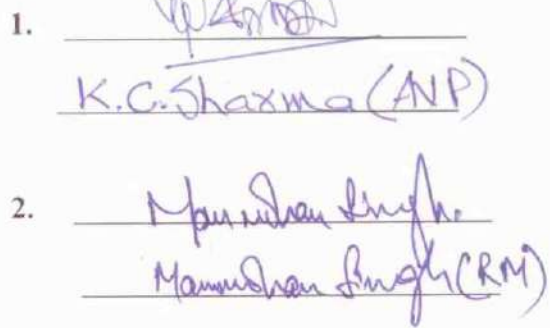 1.
K.C. Sharma (AVP)
2. Manmohan Singh.
Manmohan Singh (RM)